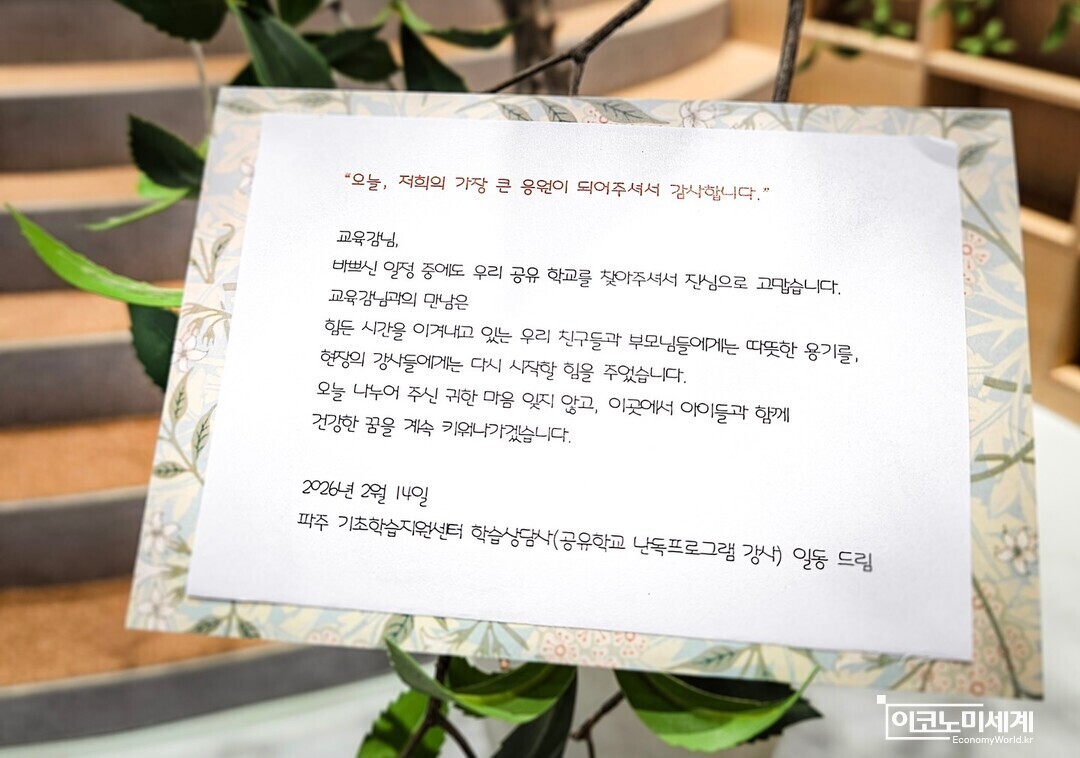 “오늘, 저희의 가장 큰 응원이 되어주셔서 감사합니다.”
교육감님,
바쁘신 일정 중에도 우리 공유 학교를 찾아주셔서 진심으로 고맙습니다.
교육감님과의 만남은
힘든 시간을 이겨내고 있는 우리 친구들과 부모님들에게는 따뜻한 용기를,
현장의 강사들에게는 다시 시작할 힘을 주었습니다.
오늘 나누어 주신 귀한 마음 잊지 않고, 이곳에서 아이들과 함께
건강한 꿈을 계속 키워나가겠습니다.
2026년 2월 14일
파주 기초학습지원센터 학습상담사(공유학교 난독프로그램 강사) 일동 드림
이코노미세계
EconomyWorld.kr